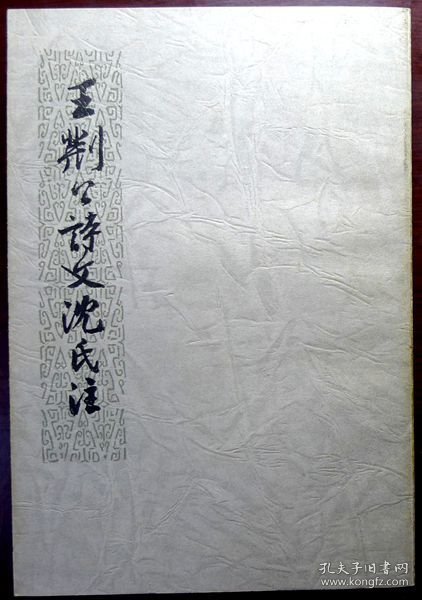 王荆公詩文沈氏注
孔夫子旧书网
www.kongfz.com